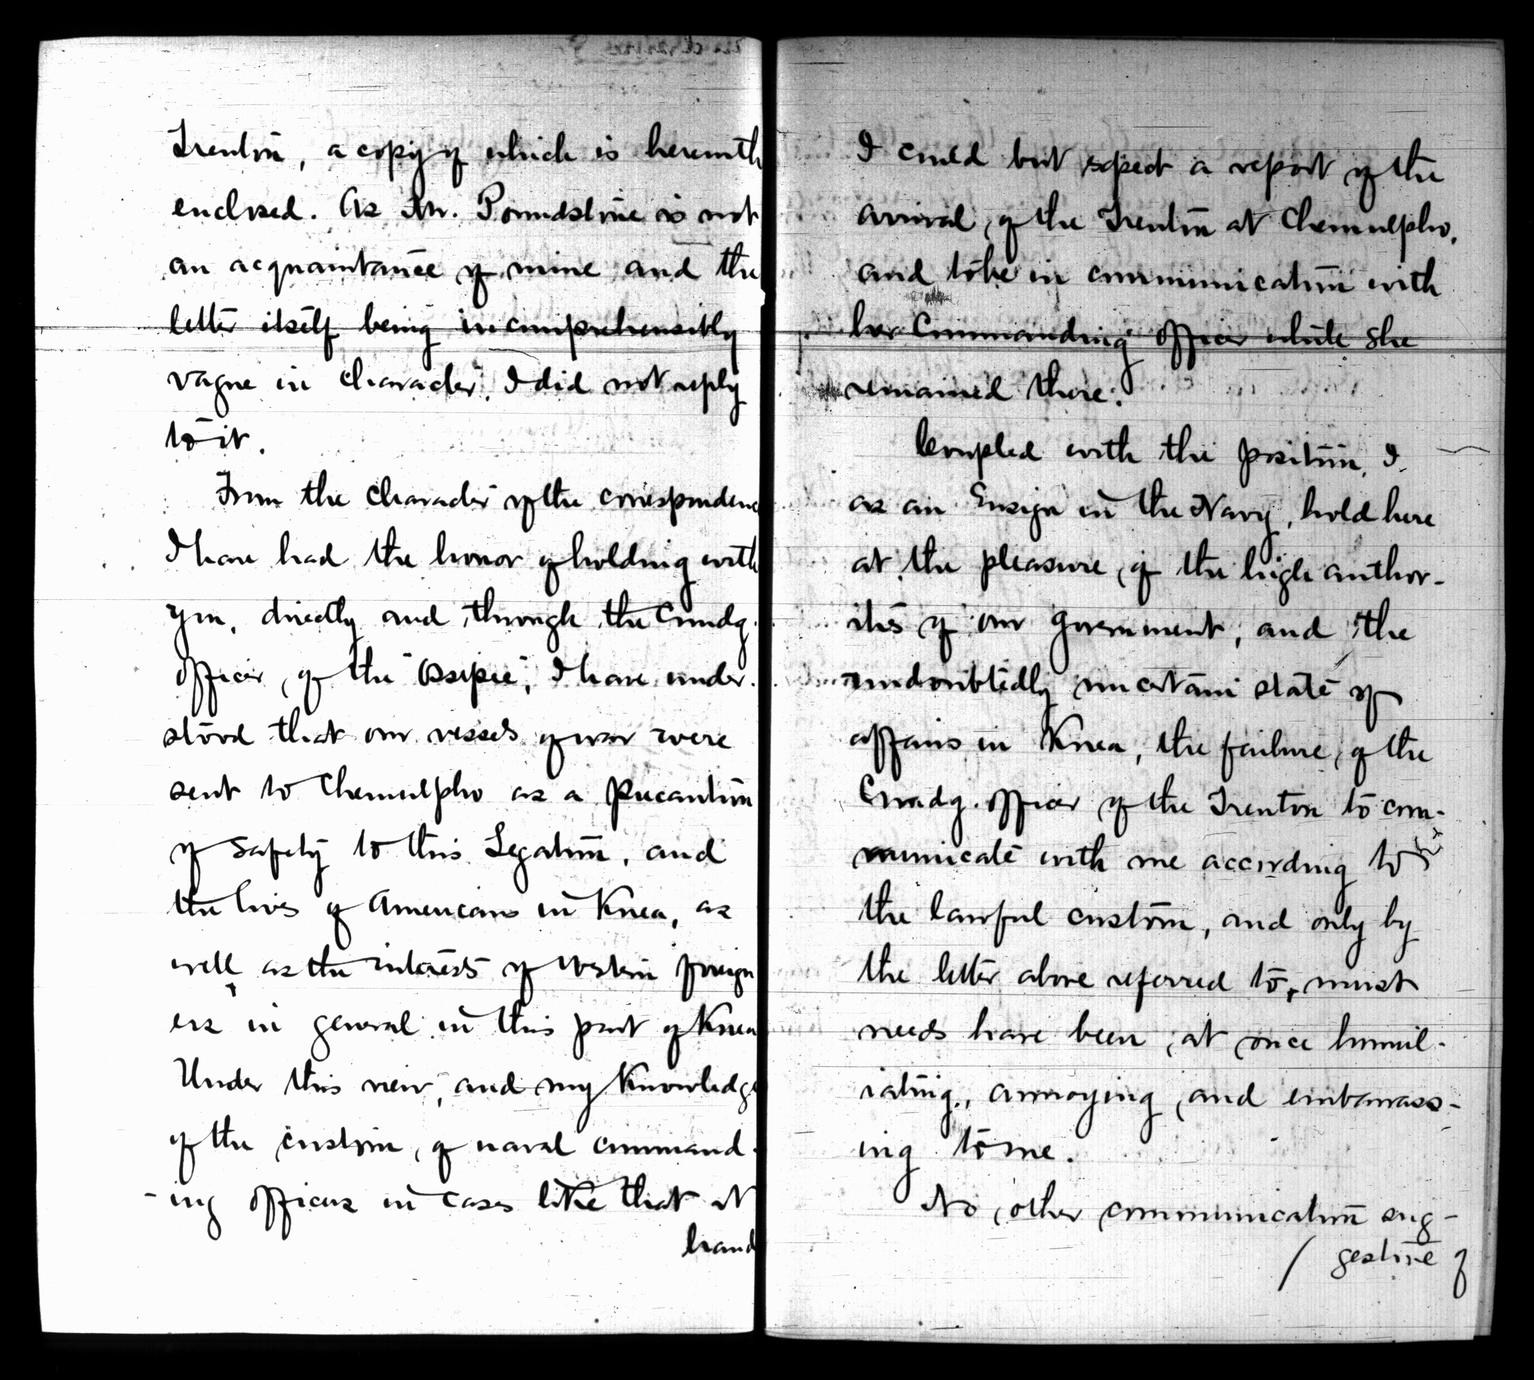 Trenton, a copy of which is herewith
enclosed. As Mr. Poundstone is not
an acquaintance of mine and the
letter itself being incomprehensibly
vague in character, I did not reply
to it.
From the character of the correspondence
I have had the honor of holding with
you, directly and through the Comdg.
officer, of the "Ossipee", I have under-
stood that our vessels of war were
sent to Chemulpho as a precaution
of safety to this Legation, and
the lives of Americans in Korea, as
well as the interests of Western foreign
ers in general in this part of Korea
Under this view, and my knowledge
of the custom, of naval command-
ing officers in cases like that at
hand
I could but expect a report of the
arrival, of the Trenton at Chemulpho,
and to be in communication with
her Commanding officer while she
remained there.
Coupled with the position, I
as an Ensign in the Navy, hold here
at the pleasure, of the high author-
ities of our government, and the
undoubtedly uncertain state of
affairs in Korea, the failure, of the
Comdg. officer of the Trenton to com-
municate with me according to
the lawful custom, and only by
the letter above referred to, must
needs have been, at once humil-
iating, annoying, and embarrass-
ing to me.
No other communication sug-
gestive of